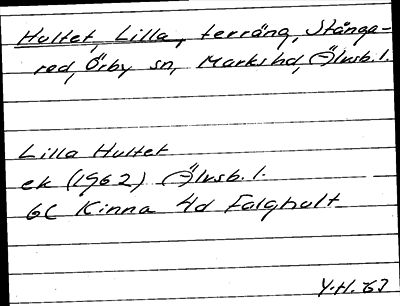 Hultet, Lilla, terräng, Stånga-
red, Örby sn, Markshd, Älvsb. l.
Lilla Hultet
ek (1962) Älvsb. l.
6C Kinna 4d Falghult
Y.H. 63